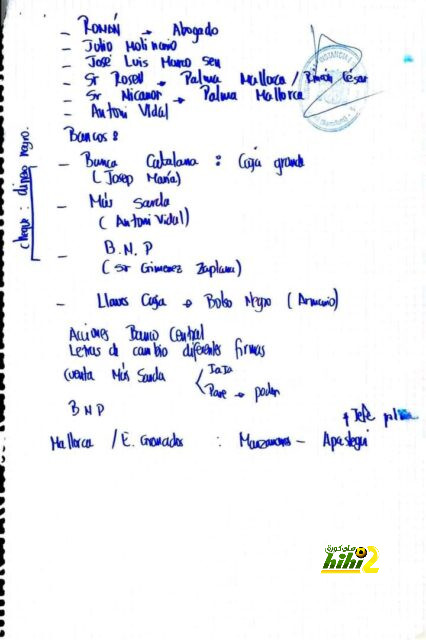 - ROMÁN → Abogado
- Julio Molinario
- José Luis Marco Seu
- Sr Rosell → Palma Mallorca / Román César
- Sr Nicanor → Palma Mallorca
- Antoni Vidal
Bancos:
- Banca Catalana : Caja grande
(Josep María)
- Más Sarda
(Antoni Vidal)
- B.N.P
(Sr Gimenez Zaplana)
- Llaves Caja → Bolso Negro (Armario)
Acciones Banco Central
Letras de cambio diferentes firmas
Cuenta Más Sarda
TaTa
Pare → poder
BNP
+ Jefe
Mallorca / E. Granados : Manzanares - Apastegui
cheque : dinero negro.
هاي كورة
hihi2